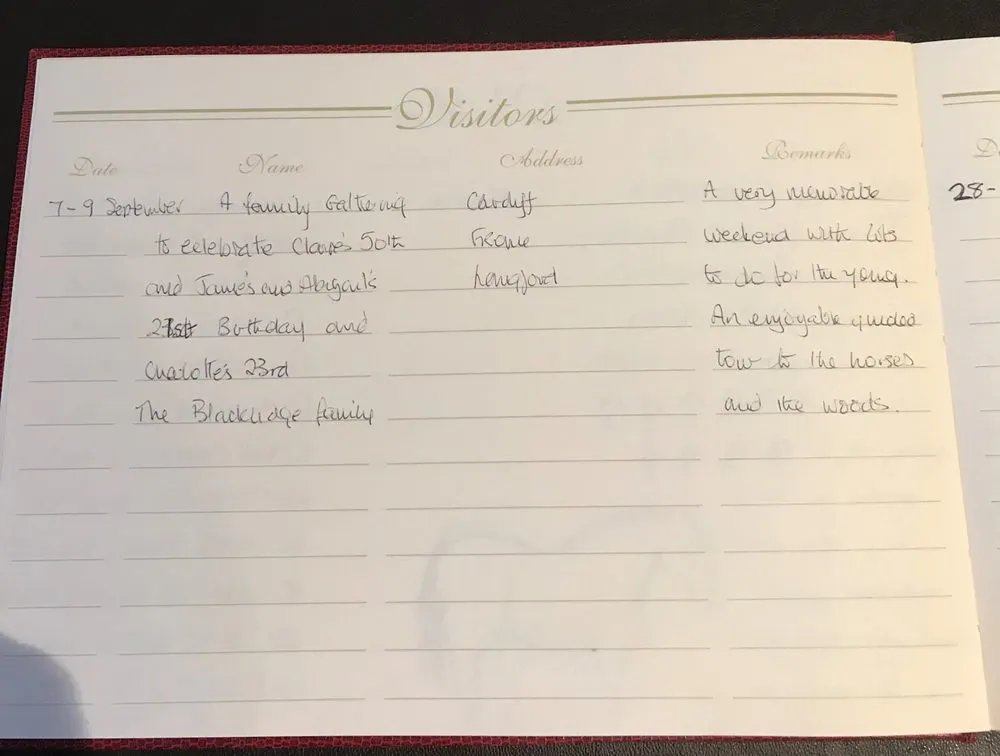 Visitors
Date Name Address Remarks
7-9 September A family Gathering Cardiff A very memorable
to celebrate Claire's 50th Frome weekend with lots
and James and Abigail's Langford to do for the young.
21st Birthday and An enjoyable guided
Charlotte's 23rd tour to the horses
The Blackledge family and the woods.
28-